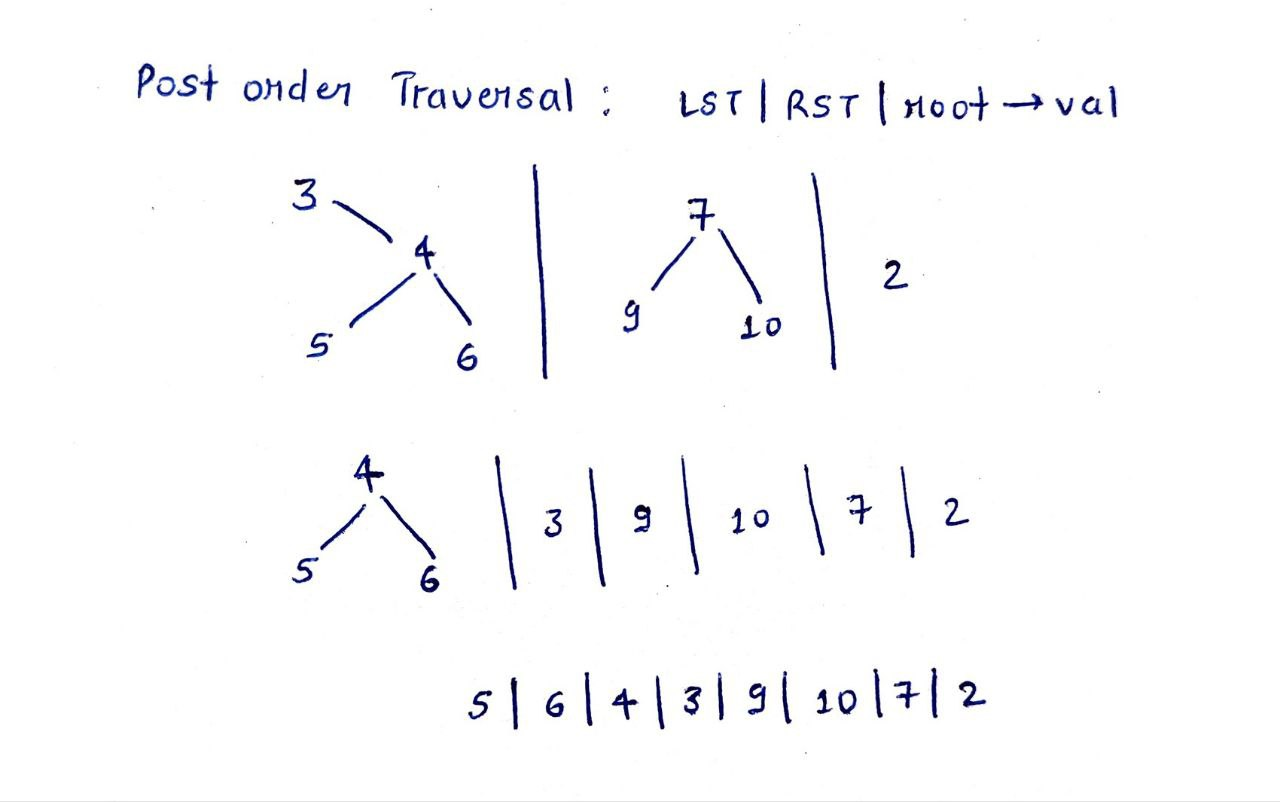 Post order Traversal : LST | RST | root → val
3
4
5
6
7
9
10
2
4
5
6
| 3 | 9 | 10 | 7 | 2
5 | 6 | 4 | 3 | 9 | 10 | 7 | 2